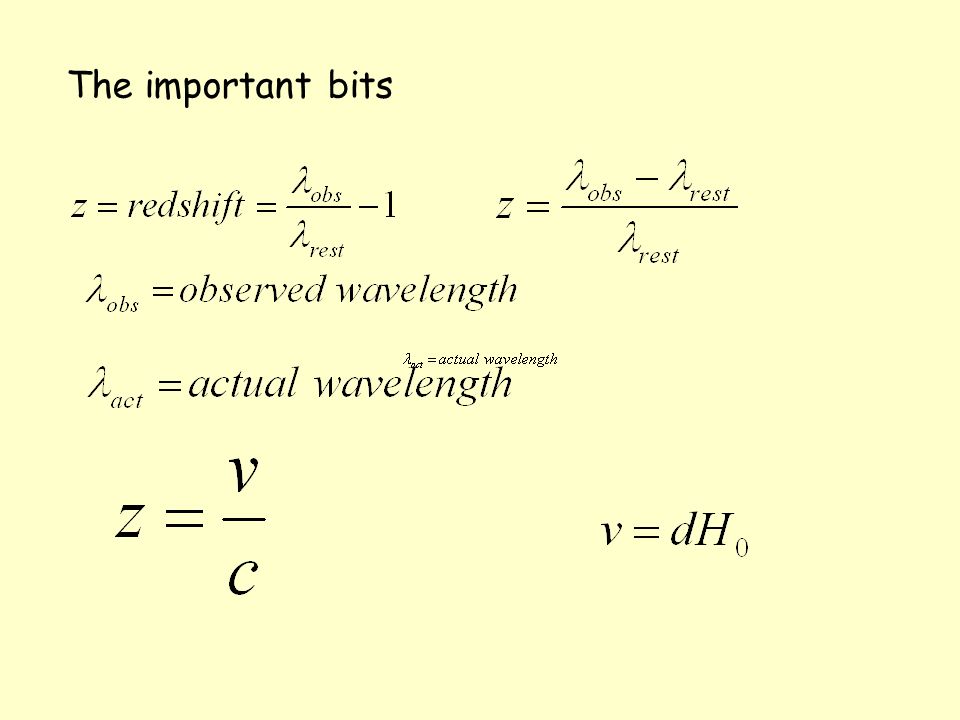 The important bits
z = redshift = λobs/λrest − 1
z = (λobs − λrest)/λrest
λobs = observed wavelength
λact = actual wavelength
λact = actual wavelength
z = v/c
v = dH0